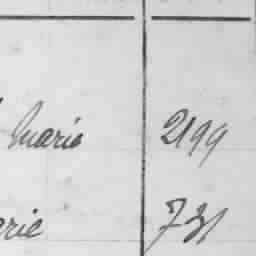 Marie 2199
arie 731